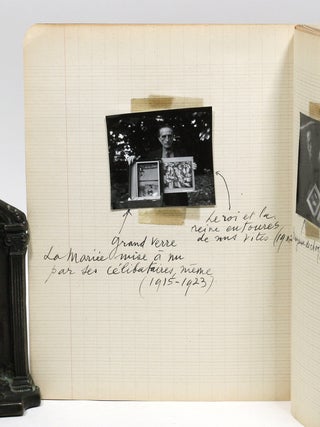 Le roi et la
reine entourés
de nus vites (191
grand verre
La Mariée mise à nu
par ses célibataires, même
(1915-1923)